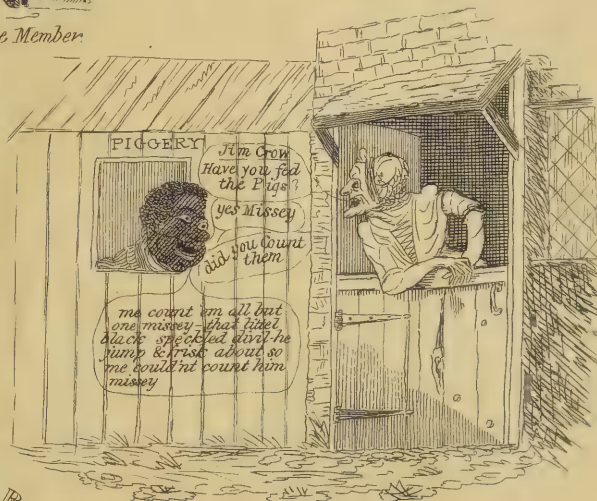 e Member.
PIGGERY
Jim Crow
Have you fed
the Pigs?
yes Missey
did you Count
them
me count em all but
one missey - that littel
black speckled divil-he
jump & frisk about so
me could'nt count him
missey